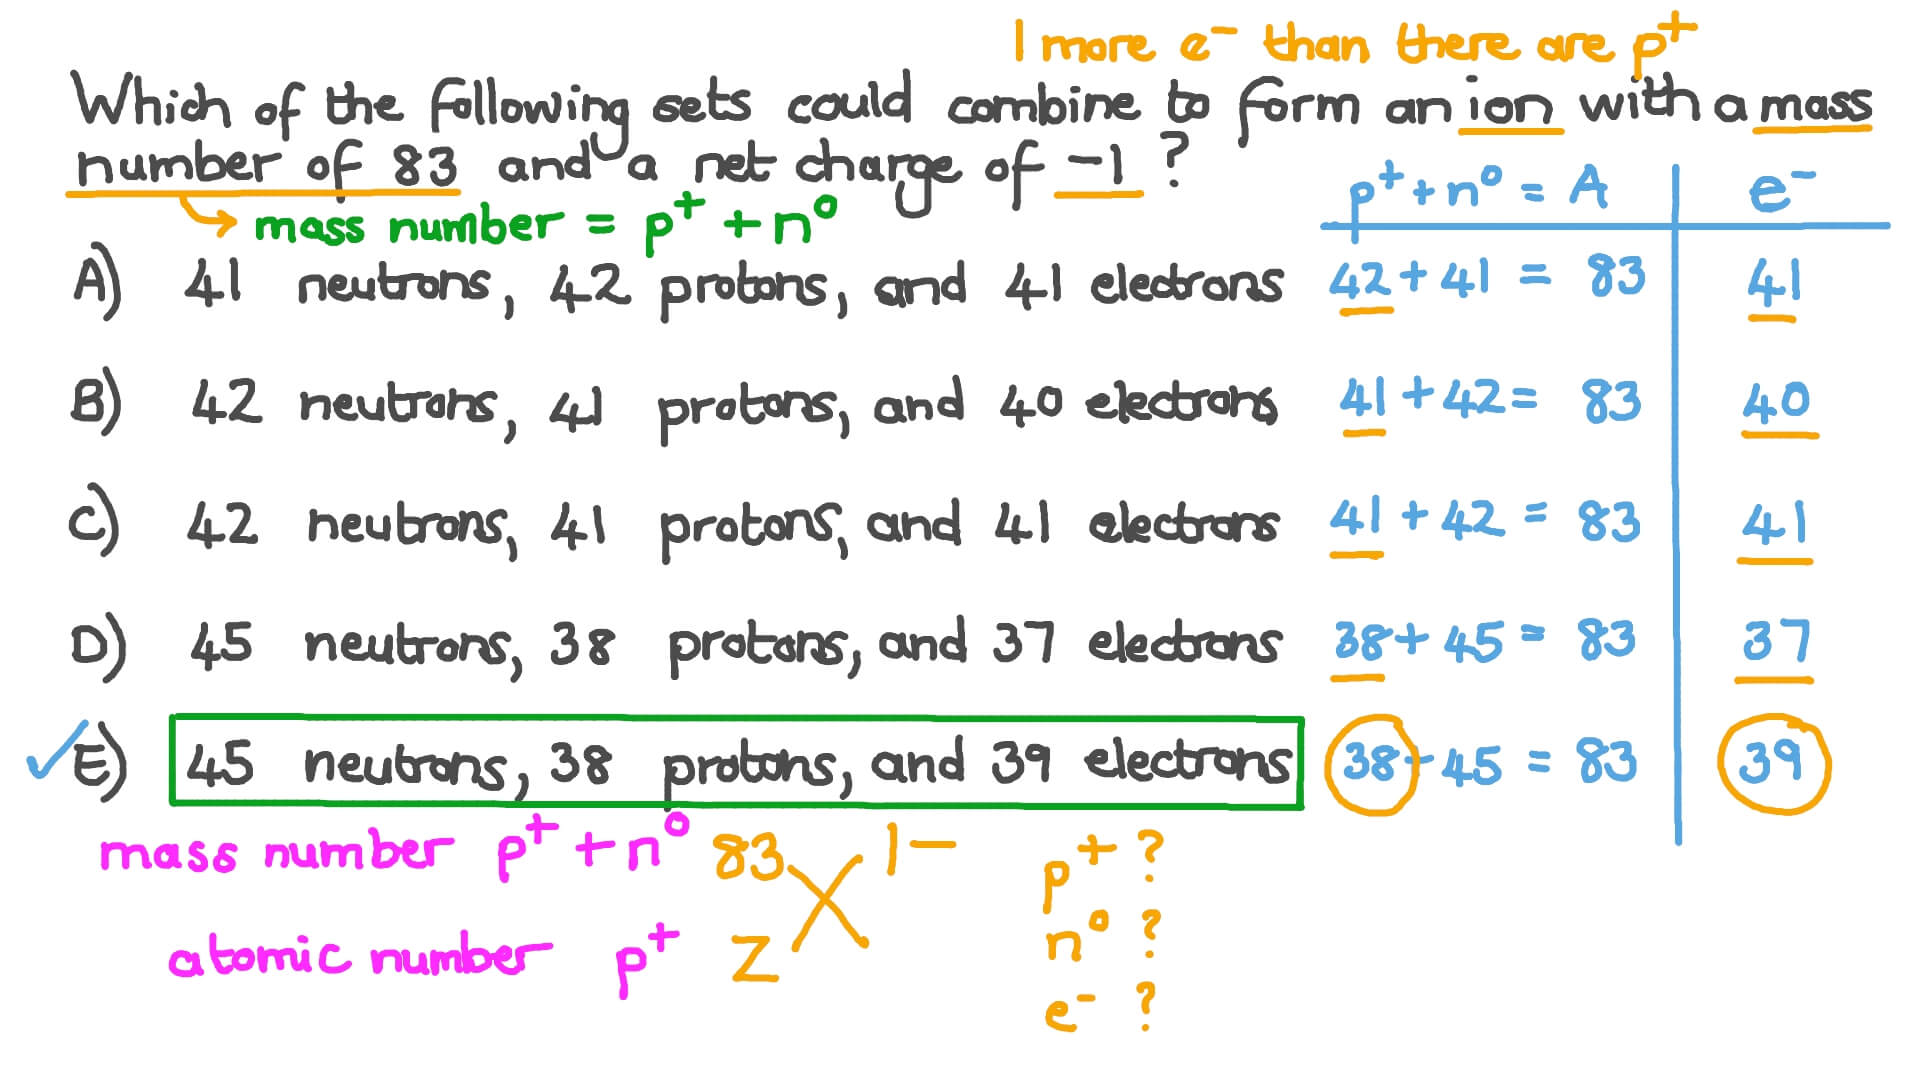 1 more e⁻ than there are p⁺
Which of the following sets could combine to form an ion with a mass
number of 83 and a net charge of -1 ?
mass number = p⁺ + n⁰
p⁺ + n⁰ = A e⁻
A) 41 neutrons, 42 protons, and 41 electrons 42 + 41 = 83 41
B) 42 neutrons, 41 protons, and 40 electrons 41 + 42 = 83 40
C) 42 neutrons, 41 protons, and 41 electrons 41 + 42 = 83 41
D) 45 neutrons, 38 protons, and 37 electrons 38 + 45 = 83 37
E) 45 neutrons, 38 protons, and 39 electrons 38 + 45 = 83 39
mass number p⁺ + n⁰ 83 X 1- p⁺ ?
atomic number p⁺ Z n⁰ ?
e⁻ ?